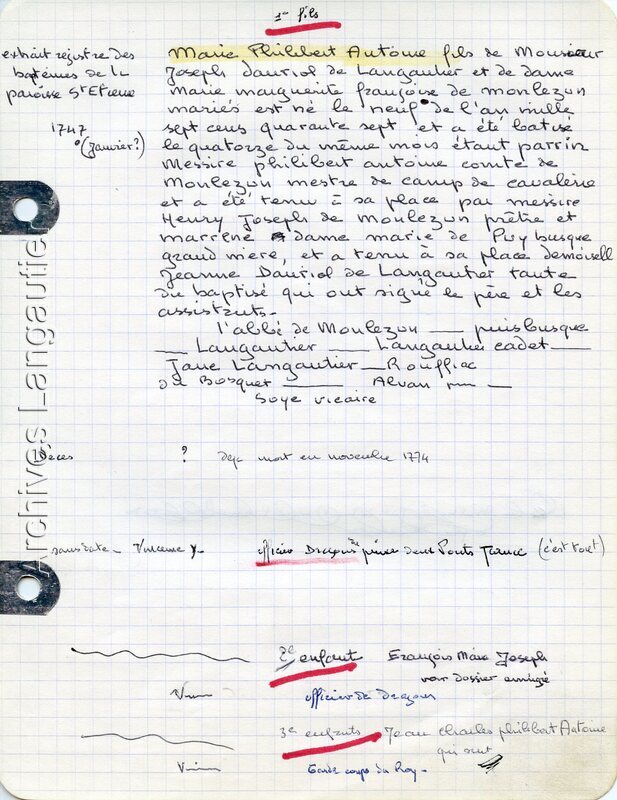 1er fils
extrait registre des
baptêmes de la
paroisse St Etienne
1747
(Janvier?)
Marie Philibert Antoine fils de Monsieur
Joseph dauriol de Langautier et de dame
Marie marguerite françoise de monlezon
mariés est né le neuf de l'an mille
sept cens quarante sept et a été batisé
le quatorze du même mois étant parrin
Messire philibert antoine comte de
Monlezun mestre de camp de cavalerie
et a été tenu à sa place par messire
Henry Joseph de monlezon prêtre et
marrene dame marie de Puybusque
grand mère, et a tenu à sa place demoisell
Jeanne Dauriol de Langautier tante
du baptisé qui ont signé le père et les
assistants.
l'abbé de Monlezon puisbusque
Langautier Langautier cadet
Jane Langautier Rouffiac
du Bosquet Alvan
Soye vicaire
Décès ? déjà mort en novembre 1774
sans date officier Dragons deux Ponts (c'est tout)
2e enfant François Marie Joseph
voir dossier émigré
officier de dragons
3e enfants Jean Charles philibert Antoine
qui sent
Garde corps du Roy -
Archives Langautier